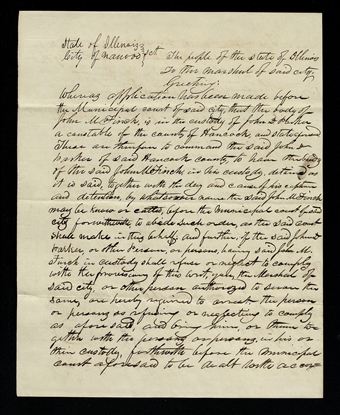 State of Illinois }
City of Nauvoo } sct. The people of the State of Illinois
To the Marshal of said city,
Greeting.
Whereas application has been made before
the Municipal court of said city, that the body of
John M. Finch, is in the custody of John D. Parker
a constable of the county of Hancock and state aforesaid
These are therefore to command the said John D.
Parker of said Hancock county to have the body
of the said John M. Finch in his custody, detained as
it is said, together with the day and cause of his caption
and detention, by whatsoever name the said John M. Finch
may be known or called, before the Municipal court of said
city forthwith, to abide such order, as the said court
shall make in this behalf, and further, if the said John D.
Parker, or other person, or persons, having said John M.
Finch in custody shall refuse or neglect to comply
with the provisions of this writ, you, the Marshal of
said city, or other person authorized to serve the
same, are hereby required to arrest the person
or persons so refusing or neglecting to comply
as aforesaid, and bring him, or them to
gether with the person or persons, in his or
their custody, forthwith before the Municipal
court aforesaid to be dealt with accor